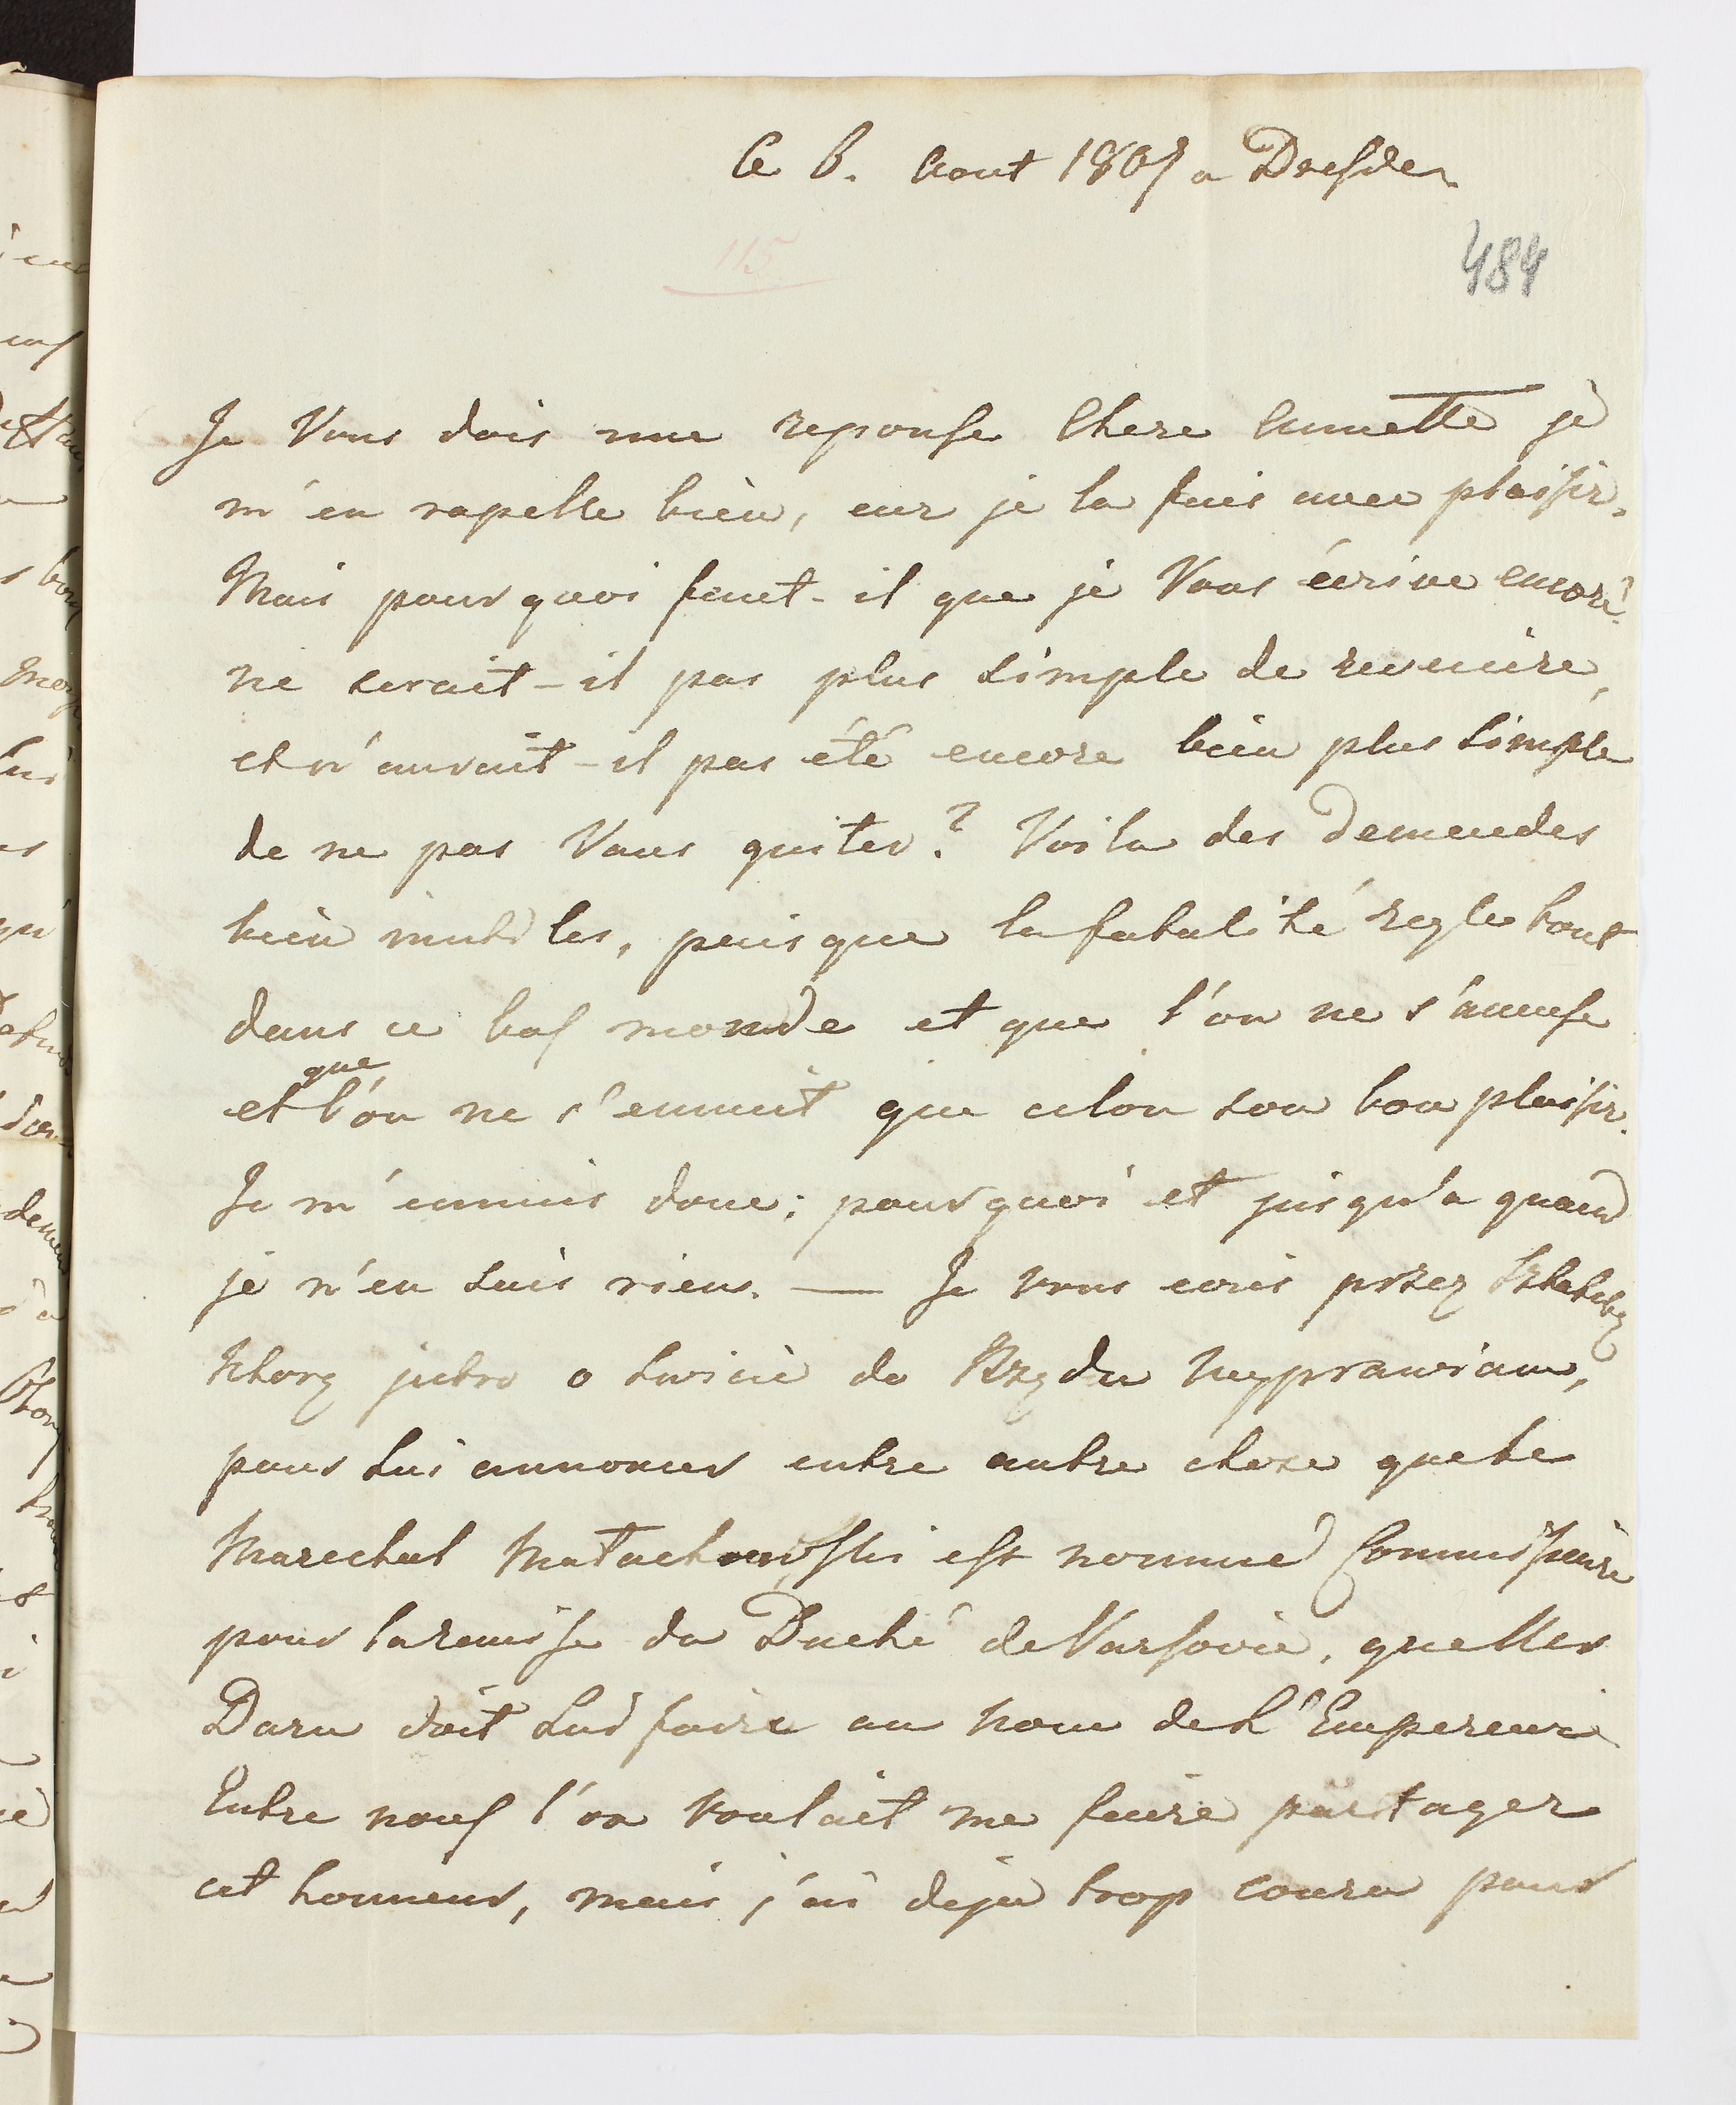 Ce 6. Aout 1807 a Dresden
115
484
Je Vous dois une reponse Chere Annette je
m'en rapelle bien, car je la fais avec plaisir.
Mais pourquoi faut-il que je Vous écrive encore?
ne cerait-il pas plus simple de revenire,
et n'aurait-il pas été encore bien plus simple
de ne pas Vous quiter? Voila des demandes
bien inutiles, puisque la fatalité regle tout
dans ce bas monde et que l'on ne s'amuse
que
et l'on ne s'ennuit que celon son bon plaisir.
Je m'ennuis donc; pourquoi et jusqu'a quand
je n'en sais riens. — Je vous ecris przez Sztafetę
Ktorą jutro o swicie do Rządu wyprawiam,
pour lui annoncer entre autre choze que le
Marechal Małachowski est nommé Commissaire
pour la remise du Duché de Varsovie, que Mer
Daru doit lui faire au nom de L'Empereur
Entre nous l'on voulait me faire partager
cet honneur, mais j'ai deja trop couru pour